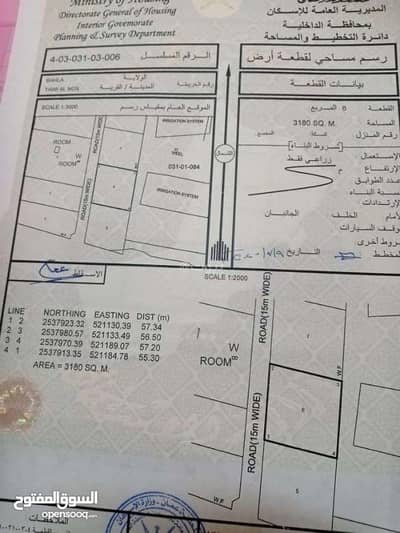 Ministry of Housing
Directorate General of Housing
Interior Govemorate
Planning & Survey Department
المديرية العامة للإسكان
بمحافظة الداخلية
دائرة التخطيط والمساحة
4-03-031-03-006 الرقم المسلسل
رسم مساحي لقطعة أرض
BAHLA الولاية
المدينة / القرية
رقم الخريطة
بيانات القطعة
SCALE 1:5000 الموقع العام بمقياس رسم
القطعة 6 المربع
المساحة 3180 SQ. M.
رقم المنزل
شروط البناء
الإستعمال زراعي فقط
الإرتفاع
عدد الطوابق
الإرتدادات
الأمام الخلف الجانبان
موقف السيارات
شروط أخرى
المخطط
التاريخ
IRRIGATION SYSTEM
ROOM
W
ROOM
ROAD(15m WIDE)
WELL
031-01-084
IRRIGATION SYSTEM
الشمال
SCALE 1:2000
LINE NORTHING EASTING DIST (m)
1 2 2537923.32 521130.39 57.34
2 3 2537980.32 521133.49 56.50
3 4 2537970.39 521189.07 57.20
4 1 2537913.35 521184.78 55.30
AREA = 3180 SQ. M.
W
ROOM
ROAD(15m WIDE)
ROAD(15m WIDE)
W.F.
6
5
W.F.
السوق المفتوح
opensooq.com
الملاحظات